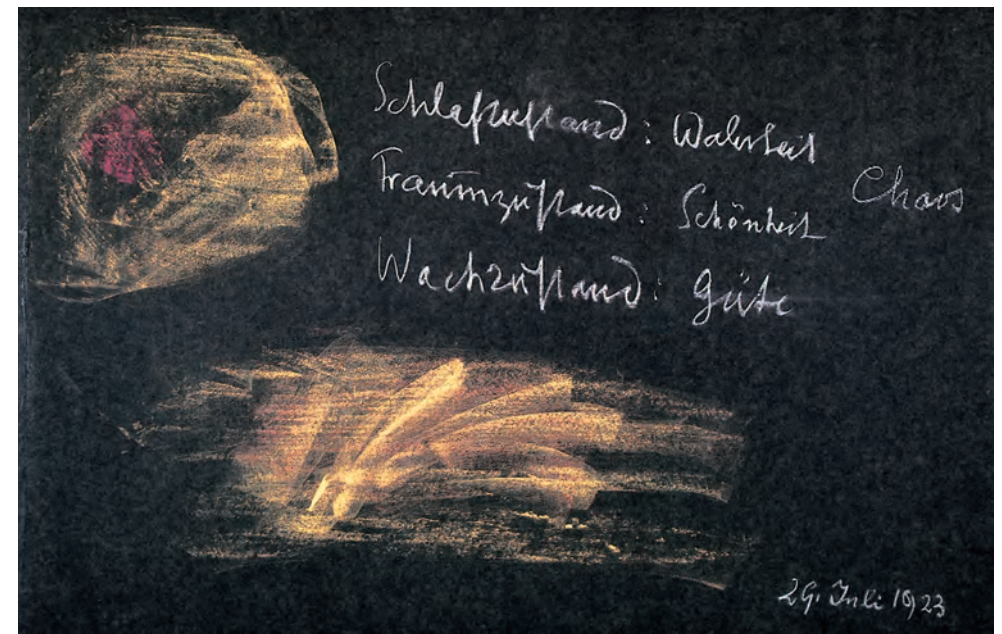 Schlafzustand: Wahrheit
Traumzustand: Schönheit
Chaos
Wachzustand: Güte
29. Juli 1923